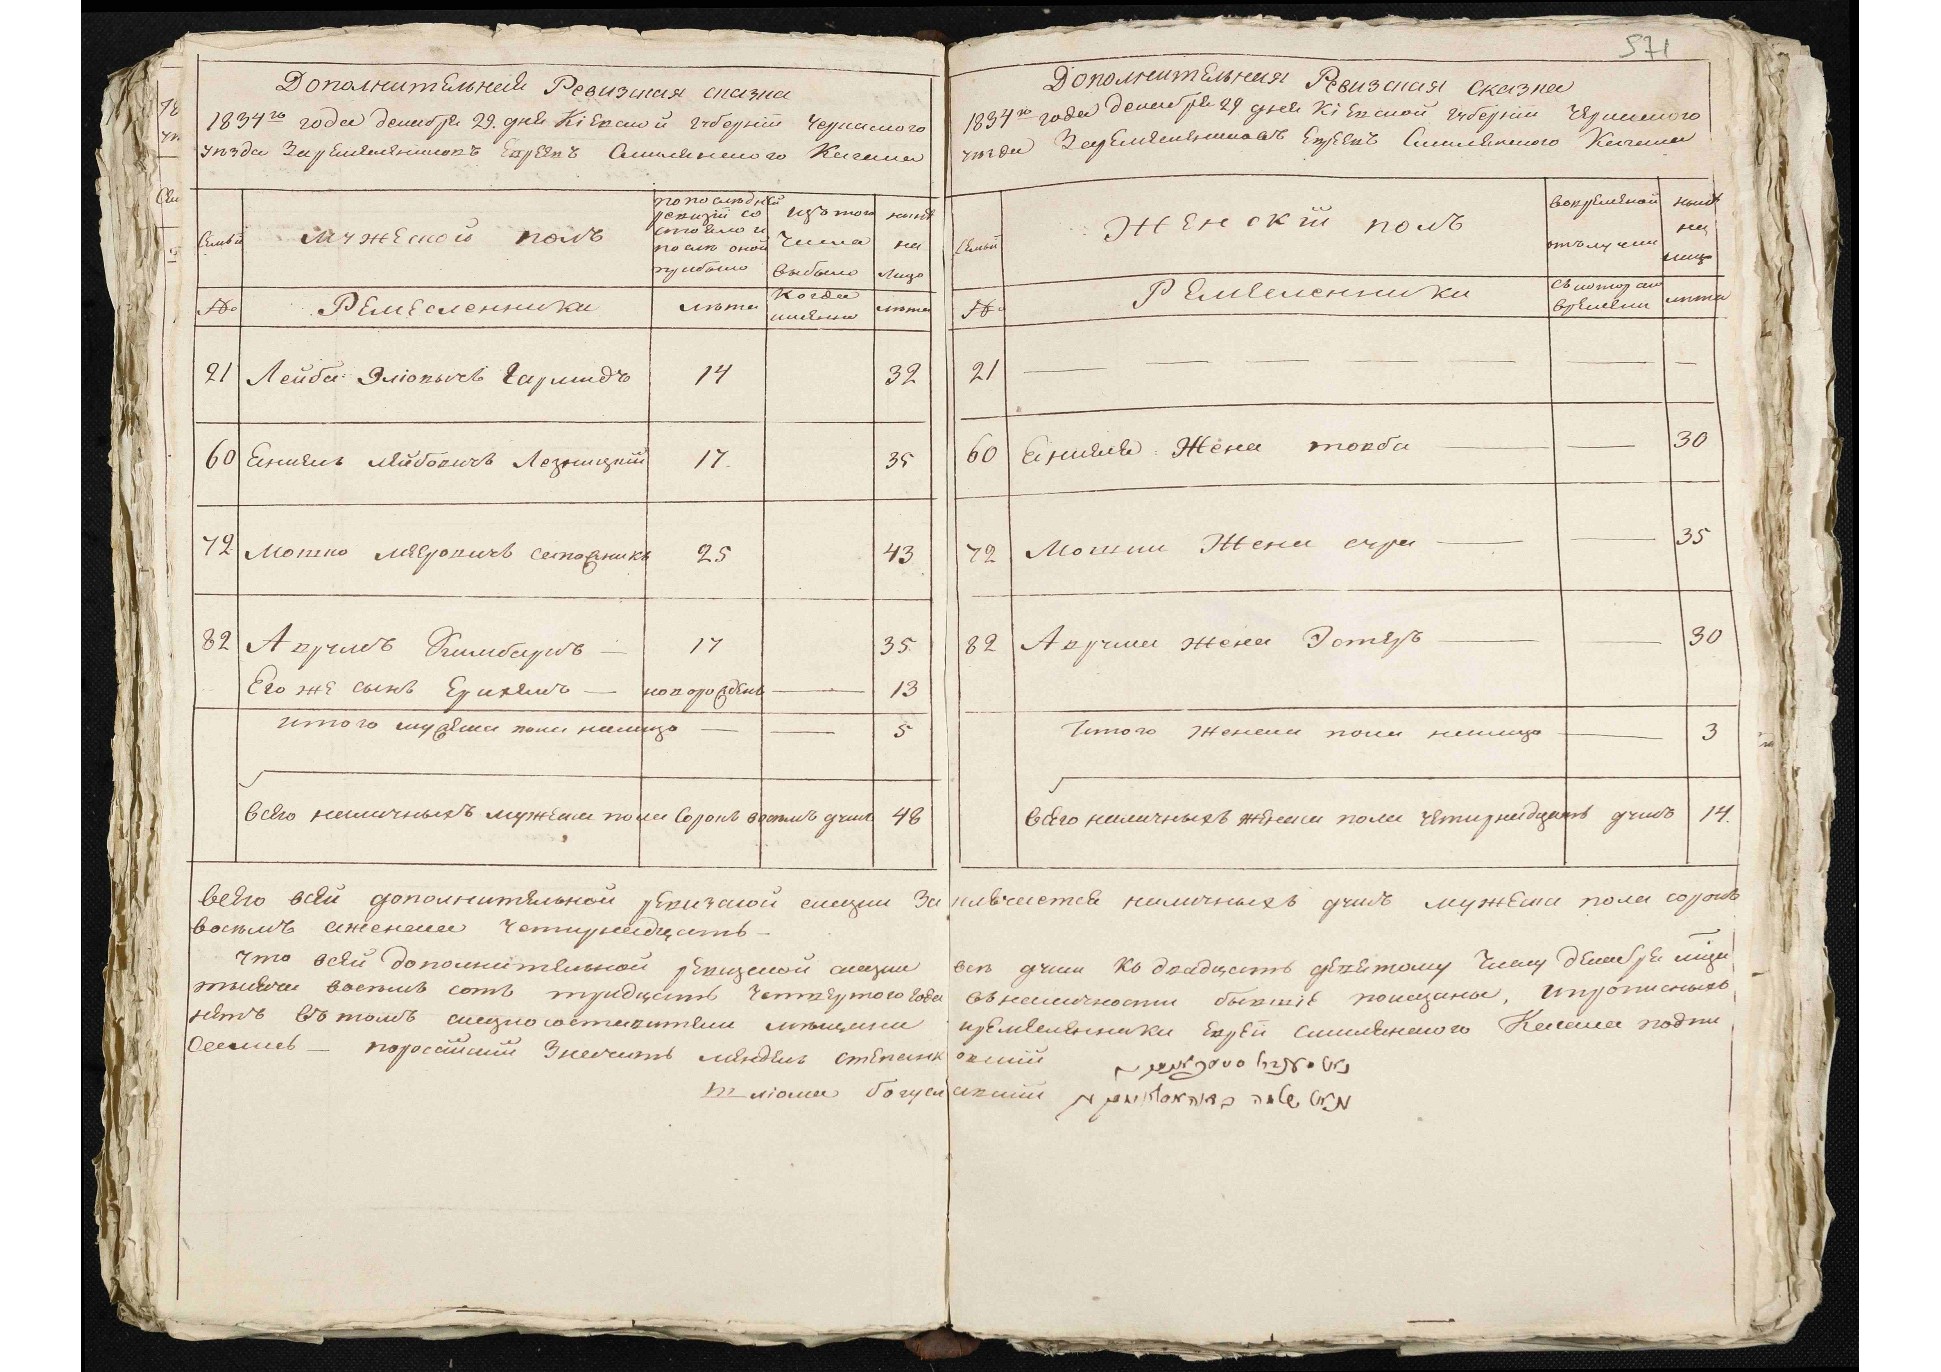 571
Дополнительная Ревизская сказка
1834го года декабря 29. дня Кіевской губерніи Черкаского
уѣзда Заремеслениковъ Евреевъ Смилянского Кагала
Семьи
мужеской полъ
попослѣдней
ревизіи со
стояло и
послѣ оной
прибыло
изътого
числа
выбыло
нынѣ
на
лицо
№
Ремесленники
лѣта
когда
имянно
лѣта
21 Лейба Эліовычъ 14 32
60 Лейбовичъ Лезницкій 17. 35
72 Мошко Мееровичъ сапожникъ 25 43
82 Аврумъ Гимбаргъ 17 35
Его же сынъ Ерихемъ новорожденъ 13
итого мужеска пола налицо 5
всего наличныхъ мужеска пола сорокъ восемъ душъ 48
Дополнительная Ревизская сказка
1834го года декабря 29 дня Кіевской губерніи Черкаского
уѣзда Заремеслениковъ Евреевъ Смилянского Кагала
Семьи
Женскій полъ
вовременной
отълучки
нынѣ
на
лицо
№
Ремесленники
съкоторого
времени
лѣта
21
60 Жена товба 30
72 Мошки Жена сура 35
82 Аврума жена Эстеръ 30
Итого женска пола налицо 3
всего наличныхъ женска пола четырнадцать душъ 14.
всего всей дополнительной ревизской сказки За наличныхъ душъ мужеска пола сорокъ
восемъ аженска Четырнадцать
Что всей дополнительной ревизской сказки всѣ души Къ двадцать девятому Числу декабря мца
тысяча восемъ сотъ тридцать Четвертого года въналичности бывшіе показаны, ипрописныхъ
нетъ Въ томъ сказкосоставители мѣщане иремесленники Евреи смилянского Кагала подпи
сались поросійскій Значитъ Мендель Степанковскій
Шліома богуславскій